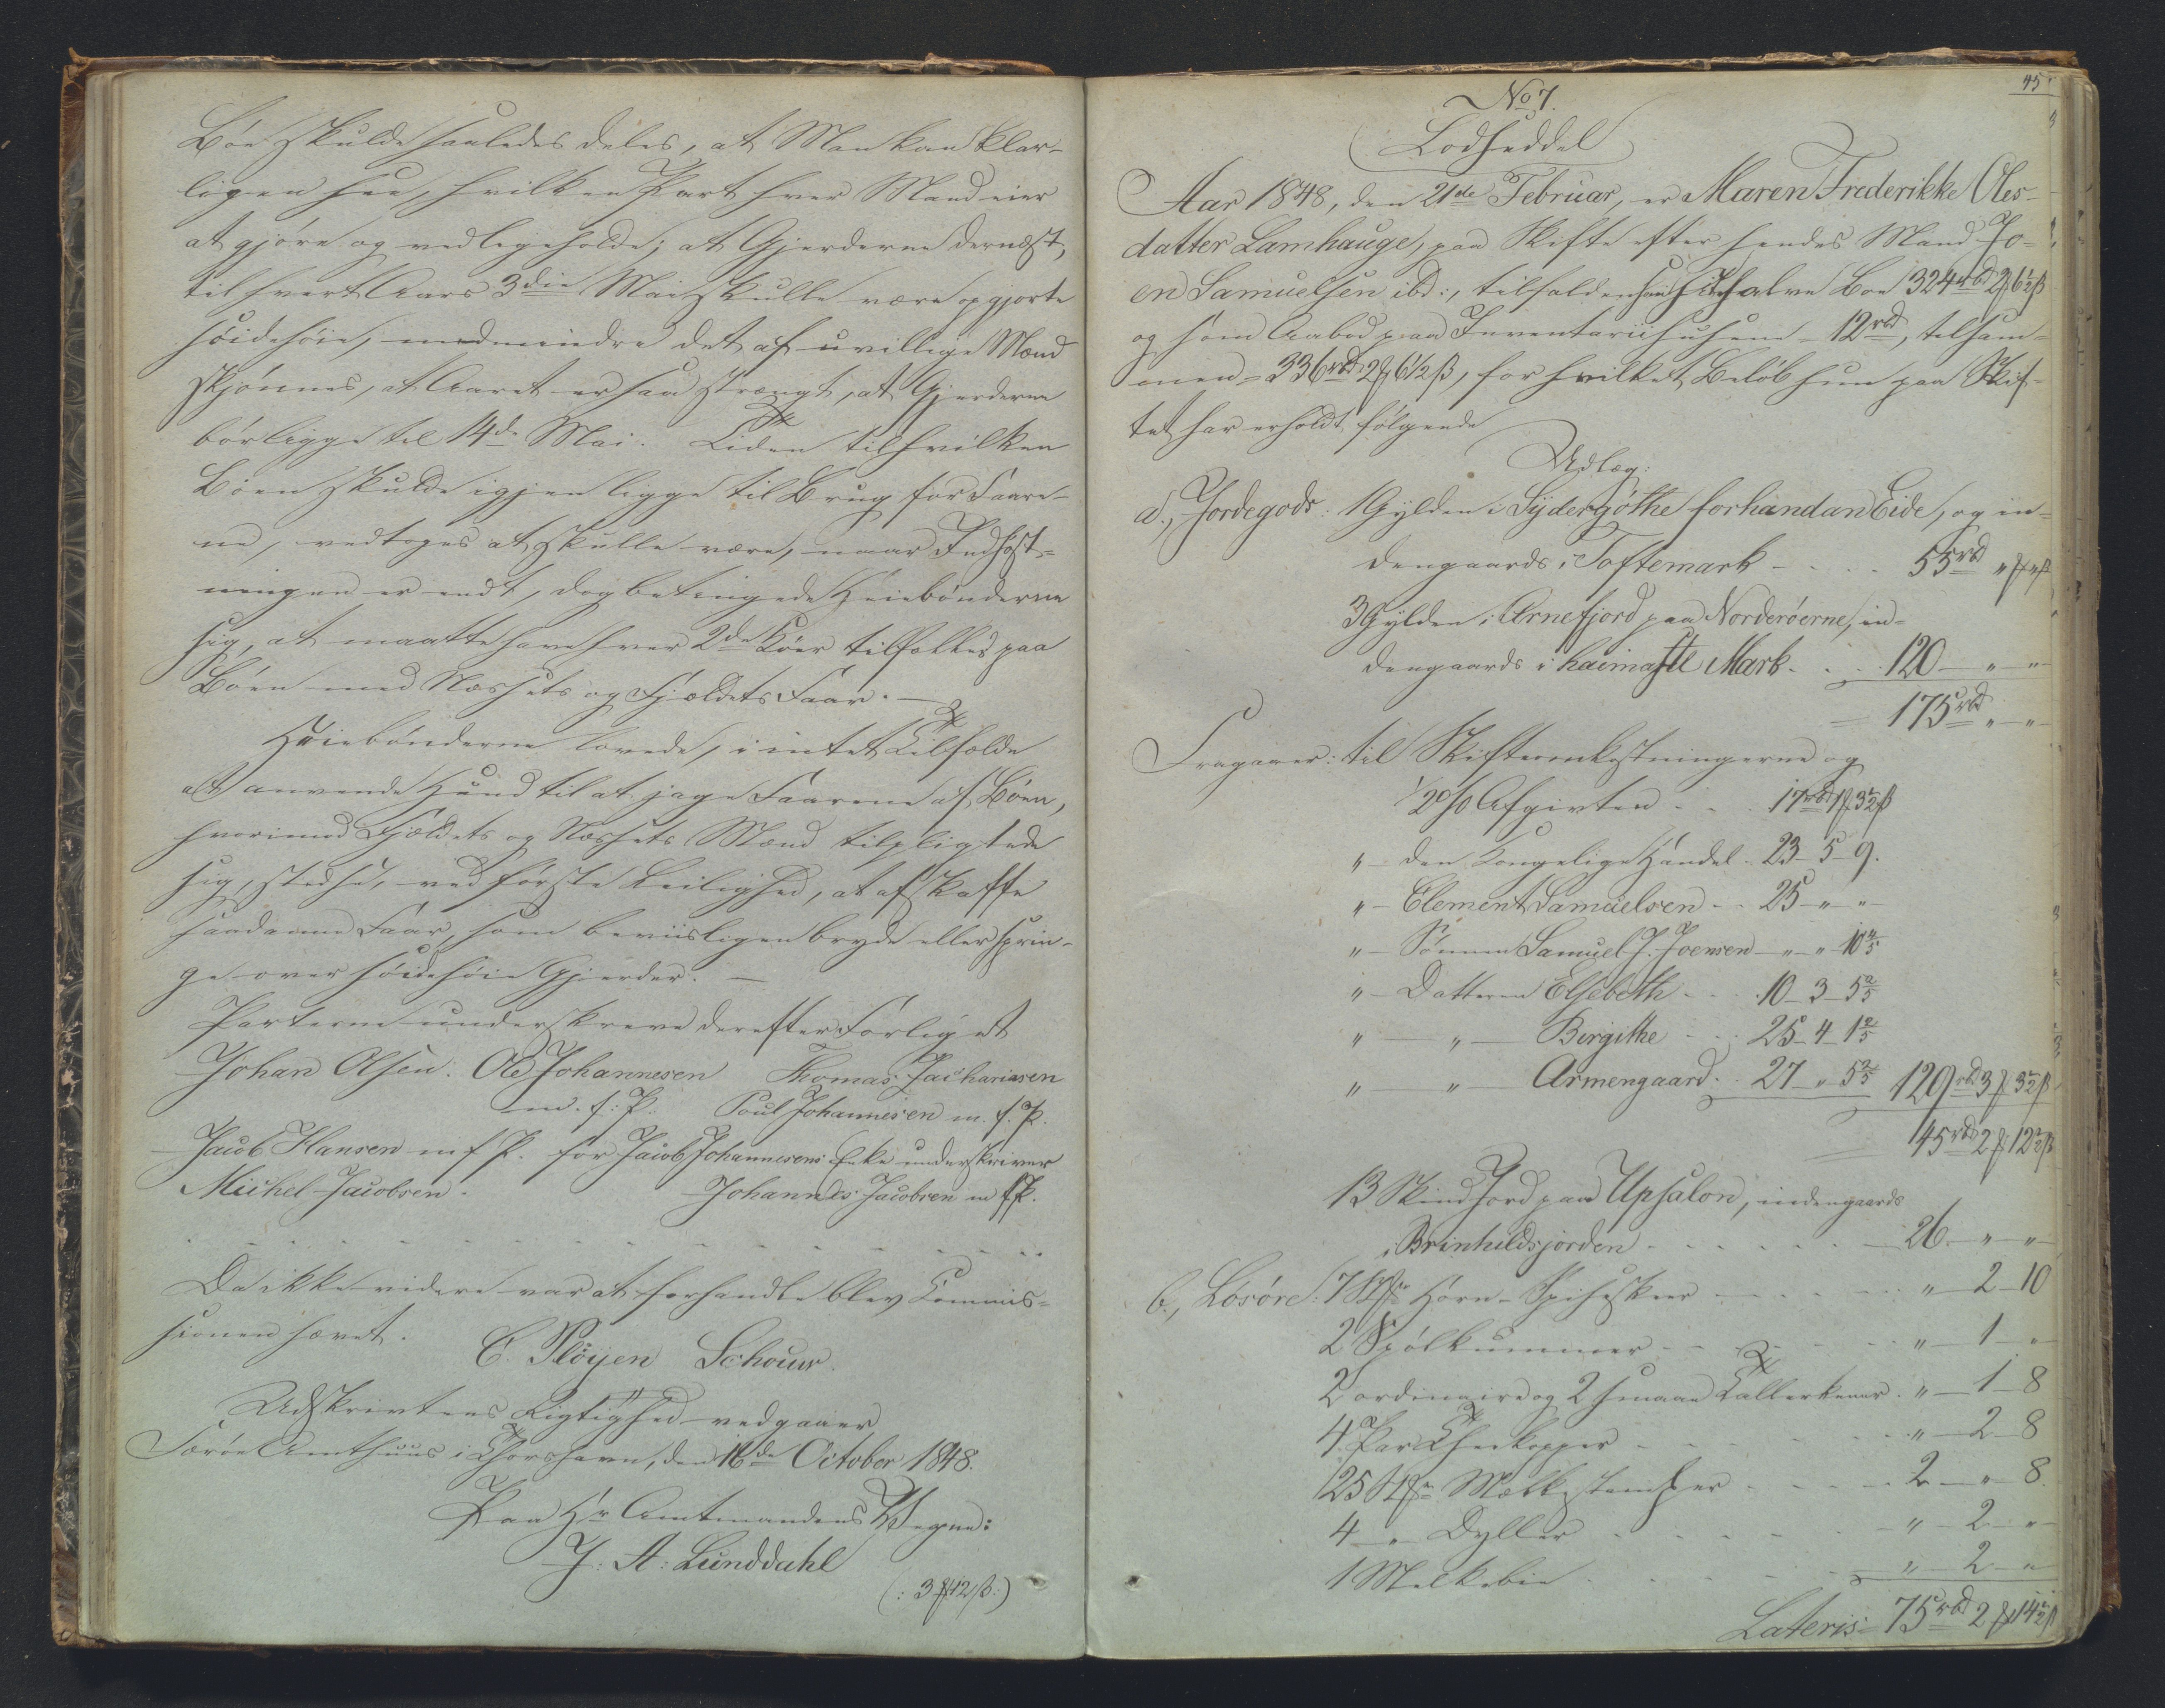 Böe skulde saaledes deles, at Man kan klar-
ligen see, hvilken Part hver Mand eier
at gjöre og vedligeholde; at Gjerderne dernæst,
til hvert Aars 3die Mai skulle være opgjorte
höidehöie, medmindre det af uvillige Mænd
skjönnes, at Aaret er saa strængt, at Gjerderne
bör ligge til 14de Mai. Tiden til hvilken
Böen skulde igjen ligge til Brug for Faare-
ne, vedtoges at skulle være, naar Indhöst-
ningen er endt, dog betingede Höiebönderne
sig, at maatte have hver 2de Köer tilfælles paa
Böen med Næssets og Fjældets Faar. —
Höiebönderne lovede, i intet Tilfælde
at anvende Hund til at jage Faarene af Böen,
hvorimod Fjældets og Næssets Mænd tilpligtede
sig, stedse, ved förste Leilighed, at afskaffe
saadanne Faar, som beviisligen bryde eller sprin-
ge over höidehöie Gjerder. —
Parterne underskreve derefter Forliget
Johan Olsen. Ole Johannesen Thomas Zachariasen
m. f. P. Poul Johannesen m. f. P.
Jacob Hansen m f P. for Jacob Johannesens Enke underskriver
Michel Jacobsen. Johannes Jacobsen m f P.
Da ikke videre var at forhandle blev Commis-
sionen hævet.
C. Plöyen Schouw.
Udskrivtens Rigtighed vedgaaer
Færöe Amthuus i Thorshavn, den 16de October 1848.
Paa Hr Amtmandens Vegne:
J. A. Lunddahl
(: 3 ₰ 12 ß:)
45
No 7.
Lodseddel
Aar 1848, den 21de Februar, er Maren Frederikke Oles-
datter Lamhauge, paa Skifte efter hendes Mand Jo-
en Samuelsen ibd:, tilfalden halve Boe 324 rbd 2 ₰ 6½ ß
og som Aabod paa Inventarii husene - 12 rbd, tilsam-
men = 336 rbd 2 ₰ 6½ ß, for hvilket Belöb hun paa Skif-
tet har erholdt fölgende
Udlæg:
a., Jordegods: 1 Gylden i Syderгöthe forhandan Eide, og in-
dengaards i Toftemark - . . . 55 rbd " ₰ " ß
3 Gylden i Arnefjord paa Norderöerne, in-
dengaards i haimasti Mark. . . 120 - " - "
= 175 rbd " - "
Fragaaer: til Skifteomkostningerne og
½ % Afgivten . . . 17 rbd 1 ₰ 3½ ß
" - den Kongelige Handel. 23 - 5 - 9.
" - Clement Samuelsen - . 25 - " - "
" - Sönnen Samuel J. Joensen - " - " - 10⅘
" - Datteren Elsebeth - . . 10 - 3 - 5⅖
" - " - Birgithe - . . 25 - 4 - 1⅖
" - " - Armengaard. . 27 - " - 5⅗ 129 rbd 3 ₰ 3½ ß
= 45 rbd 2 ₰ 12½ ß
13 Skind Jord paa Upsalon, indengaards
i Brinhildsjorden - . . . . 26 - " - "
b., Lösöre: 7 Stk Horn-Spiseskeer - . . . " - 2 - 10
2 Spölkummer - . . . " - 1 - "
2 ordinaire og 2 smaae Tallerkener. " - 1 - 8
4 Par Theekopper - . . . " - 2 - 8
25 Stk Melkestamper . . . 2 - " - 8.
4 - " - Dyller . . . " - 2 - "
1 Melkebie . . . " - 2 - "
Lateris = 75 rbd 2 ₰ 14½ ß